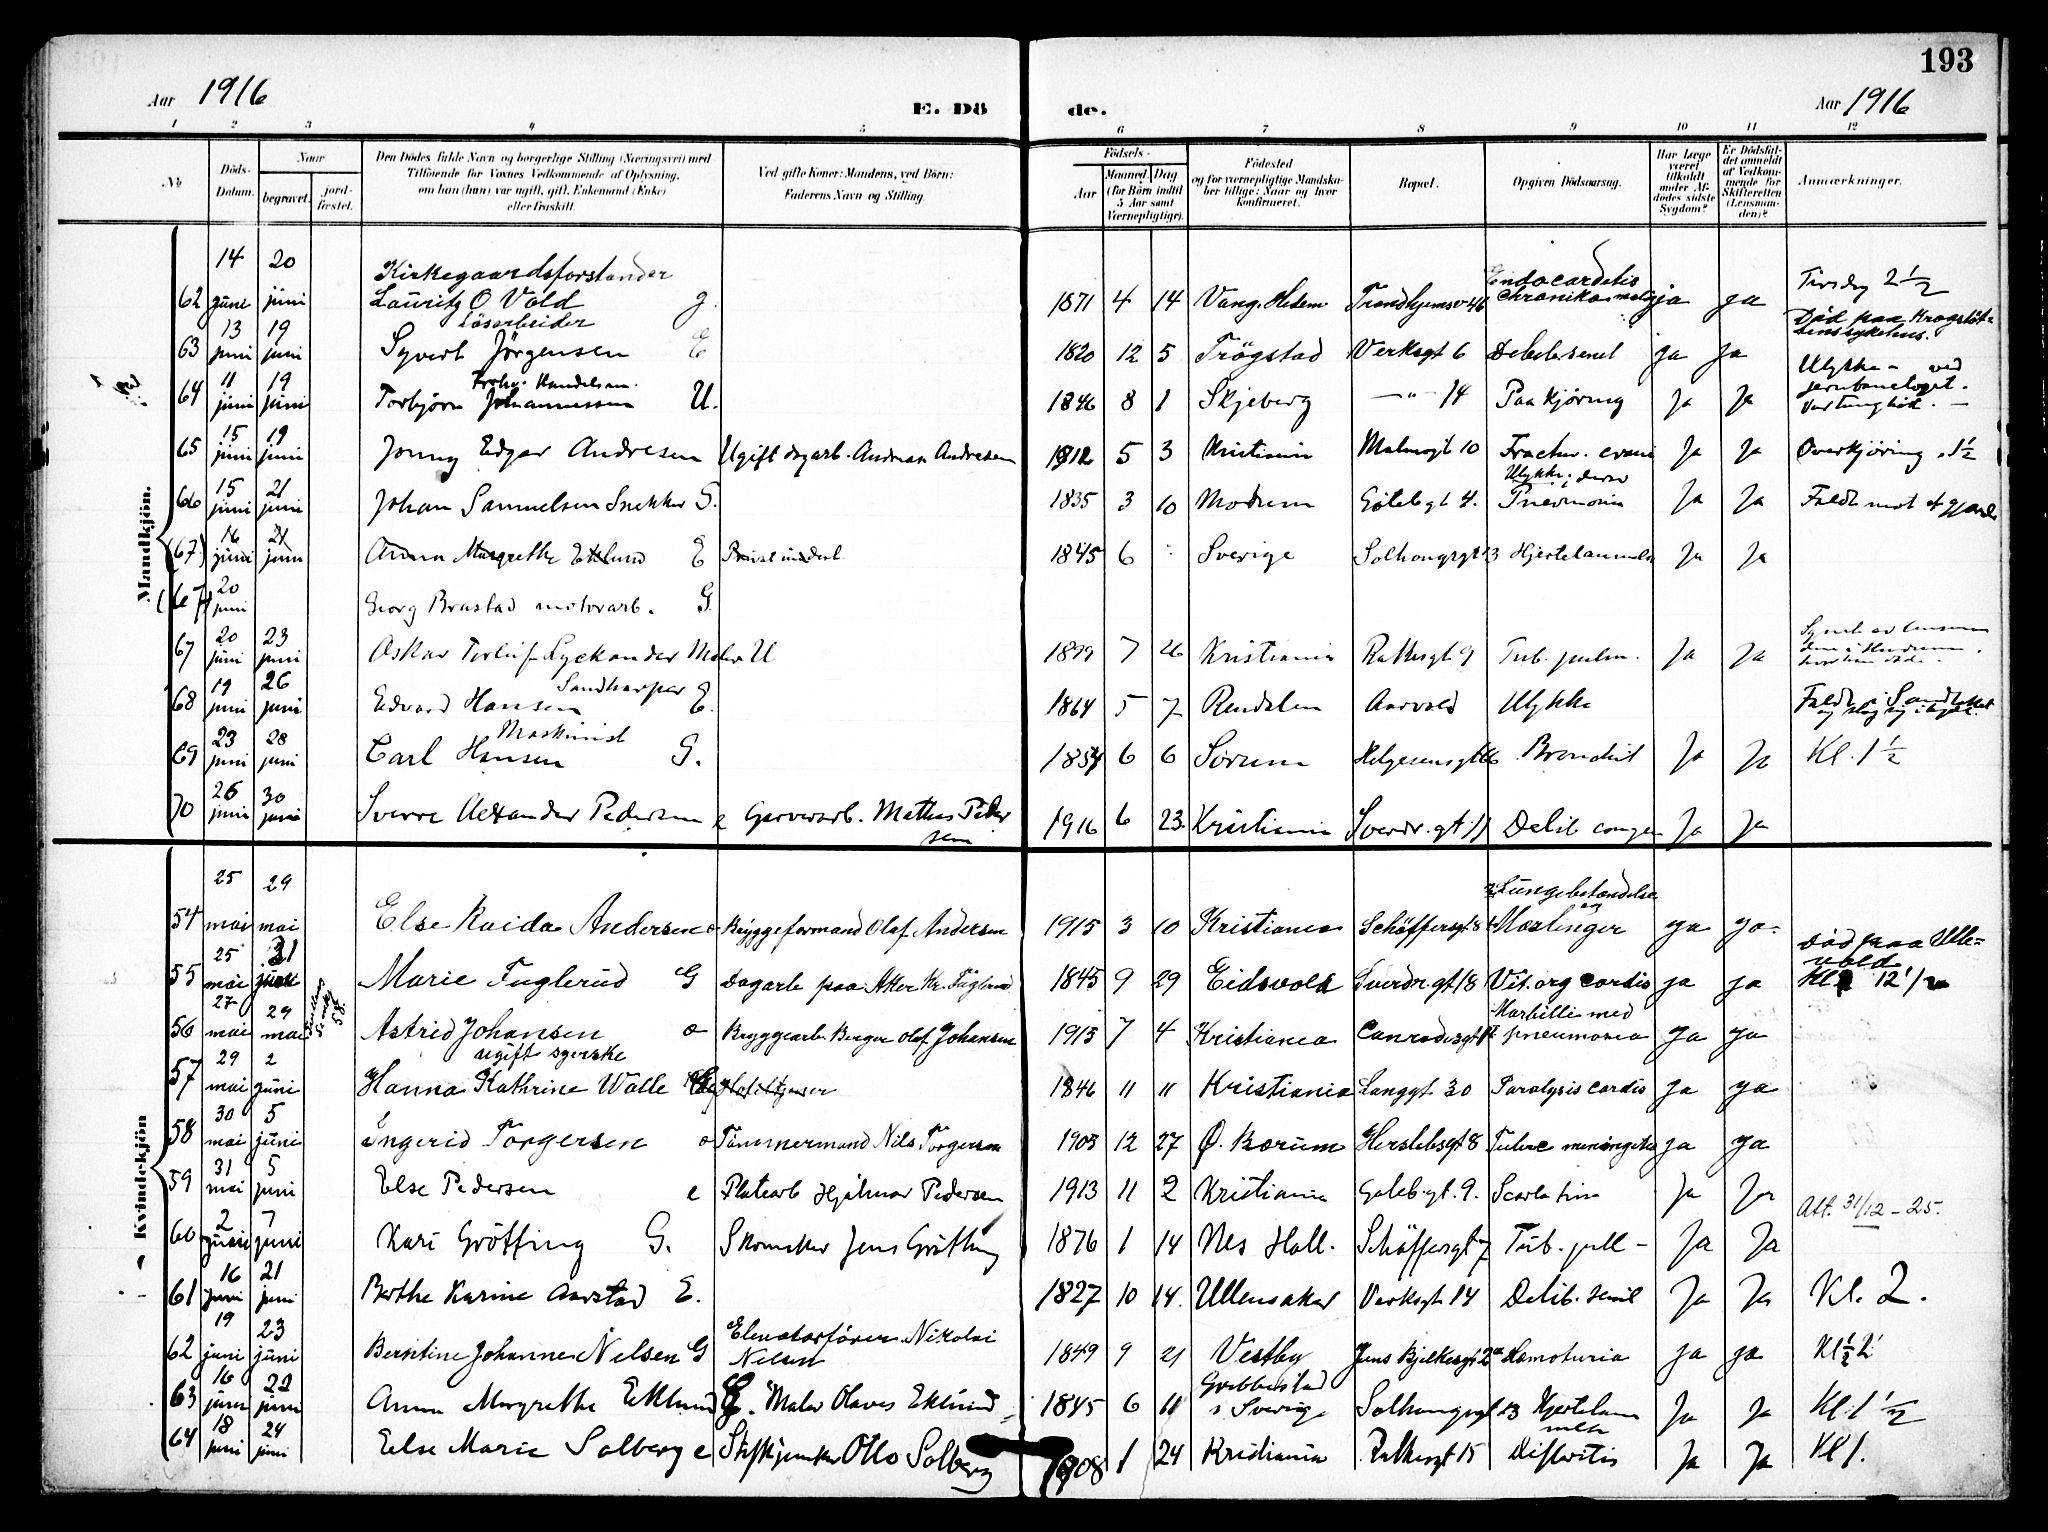 193
Aar 1916
E. Dö
de.
Aar 1916
1 2 3 4 5 6 7 8 9 10 11 12
No
Döds-Datum.
Naar
begravet.
jordfæstet.
Den Dödes fulde Navn og borgerlige Stilling (Næringsvei) med Tilföiende for Voxnes Vedkommende af Oplysning, om han (hun) var ugift, gift, Enkemand (Enke) eller fraskilt.
Ved gifte Koner: Mandens, ved Börn: Faderens Navn og Stilling.
Födsels-
Aar
Maaned Dag
(for Börn indtil 5 Aar samt Værnepligtige).
Födested
og for værnepligtige Mandskaber tillige: Naar og hvor konfirmeret.
Bopæl.
Opgiven Dödsaarsag.
Har Læge været tilkaldt under Afdödes sidste Sygdom?
Er Dödsfaldet anmeldt af Vedkommende for Skifteretten (Lensmanden)?
Anmærkninger.
Mandkjön.
62 14 juni 20 juni Kirkegaardsforstander Lauritz O Vold g. 1871 4 14 Vang. Hedem Trondhjemsv 46 Endocarditis chronika ja ja Tirsdag 2 1/2
63 13 juni 19 juni Lösarbeider Syvert Jörgensen E 1820 12 5 Trögstad Verksgt 6 ja ja Död paa
64 11 juni 19 juni Torbjörn Johannessen U. 1846 8 1 Skjeberg —"— 14 Paakjöring Ja Ja Ulykke - ved jernbanetoget.
65 15 juni 19 juni Jonny Edgar Andresen Andreas Andresen 1912 5 3 Kristiania Malmogt 10 Ja Ja Overkjöring 1 1/2
66 15 juni 21 juni Johan Samuelsen Snekker G. 1835 3 10 Modum Göteb gt 4. Ulykke; Pneumoni Ja Ja Faldt mot et gjerde
(67) 16 juni 21 juni Anna Margrethe Eklund E 1845 6 Sverige Solhaugsgt 13 Hjertelammelse Ja Ja
(67) 20 juni Georg Brustad motorarb. G.
67 20 juni 23 juni Oskar Torleif Lyckander Maler U 1899 7 26 Kristiania Rathesgt 9 Tub. pulm. Ja Ja
68 19 juni 26 juni Edvard Hansen E. 1864 5 7 Rendalen Aarvold Ulykke Faldt i
69 23 juni 28 juni Maskinist Carl Hansen G. 1854 6 6 Sörum Helgesensgt 66 Bronchit Ja Ja Kl. 1 1/2
70 26 juni 30 juni Sverre Alexander Pedersen e Garverarb. Mathias Pedersen 1916 6 23. Kristiania Sverdr. gt 11 Debil congen Ja Ja
Kvindekjön
54 25 mai 29 mai Else Raida Andersen e Bryggeformand Olaf Andersen 1915 3 10 Kristiania Schöffersgt 8 Lungebetændelse og Mæslinger ja ja.
55 25 mai 31 Marie Fuglerud G Dagarb paa Aker Kr. Fuglerud 1845 9 29 Eidsvold Sverdr. gt 18 Vit. org cordis ja ja Död paa Ullevold Kl 12 1/2
56 27 mai 29 mai Astrid Johansen e Bryggearb Birger Olaf Johansen 1913 7 4 Kristiania Conradisgt Morbilli med pneumonia Ja ja
57 29 mai 2 juni ugift syerske Hanna Kathrine Walle 1846 11 11 Kristiania Langgt 30 Paralysis cordis ja ja
58 30 mai 5 juni Ingerid Torgersen e Tömmermand Nils Torgersen 1903 12 27 Ö. Bærum Herslebsgt 8 Tuberc meningitis ja ja
59 31 mai 5 juni Else Pedersen e Platearb Hjalmar Pedersen 1913 11 2 Kristiania Göteb. gt. 9. Scarlatina Ja Ja
60 2 juni 7 juni Kari Gröthing G. Skomaker Jens Gröthing 1876 1 14 Nes Hall. Schöffersgt 7 Tub. pull - Ja Ja Att. 31/12 - 25.
61 16 juni 21 juni Berthe Karine Aarstad E. 1827 10 14. Ullensaker Verksgt 14 Debil. senil Ja Ja Kl. 2.
62 19 juni 23 juni Berntine Johanne Nilsen G Elevatorförer Nikolai Nilsen 1849 9 21 Vestby Jens Bjelkesgt 2a Hæmoturia ja ja Kl 1/2 2
63 16 juni 22 juni Anna Margrethe Eklund G. Maler Olaves Eklund 1845 6 11 Grebbestad i Sverige Solhaugsgt 13 Hjertelammelse Ja Ja Kl. 1 1/2
64 18 juni 24 juni Else Marie Solberg e Otto Solberg 1908 1 24 Kristiania Rathkesgt 15 Difteritis Ja Ja Kl 1.